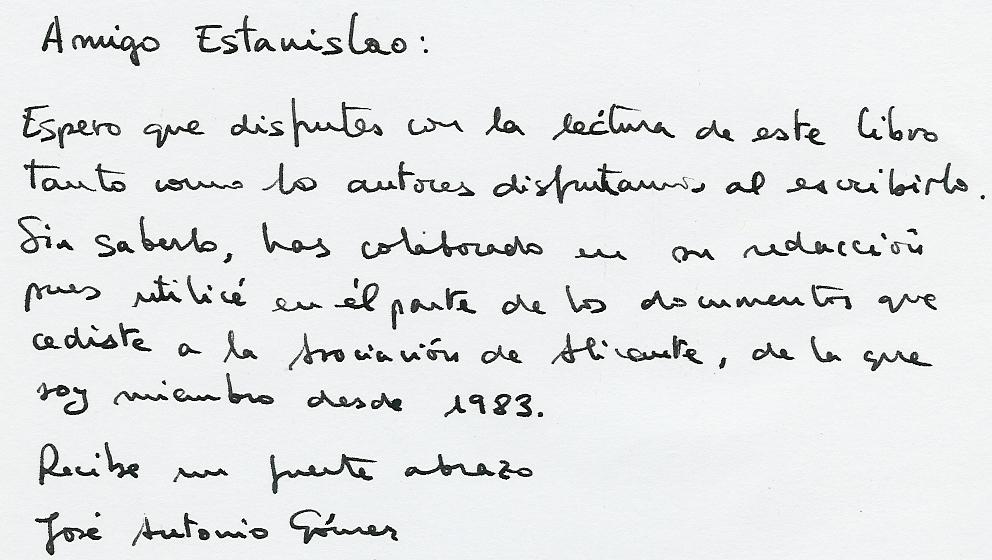 Amigo Estanislao:
Espero que disfrutes con la lectura de este libro
tanto como los autores disfrutamos al escribirlo.
Sin saberlo, has colaborado en su redacción
pues utilicé en él parte de los documentos que
cediste a la Asociación de Alicante, de la que
soy miembro desde 1983.
Recibe un fuerte abrazo
José Antonio Gómez